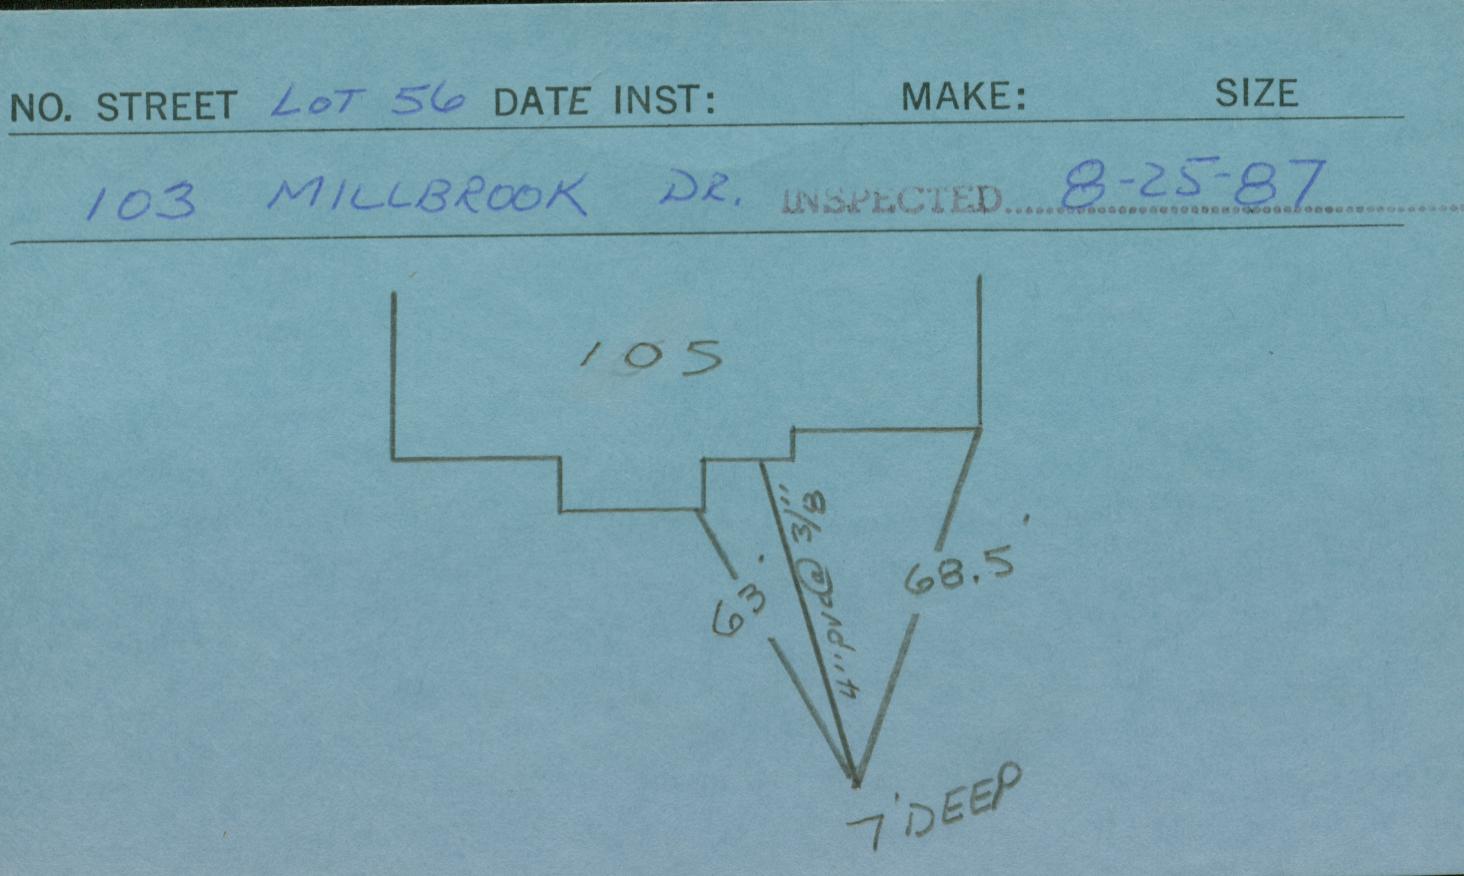 NO. STREET LOT 56 DATE INST: MAKE: SIZE
103 MILLBROOK DR. INSPECTED 8-25-87
105
63'
4" pvc @ 3/8"
68.5'
7' DEEP